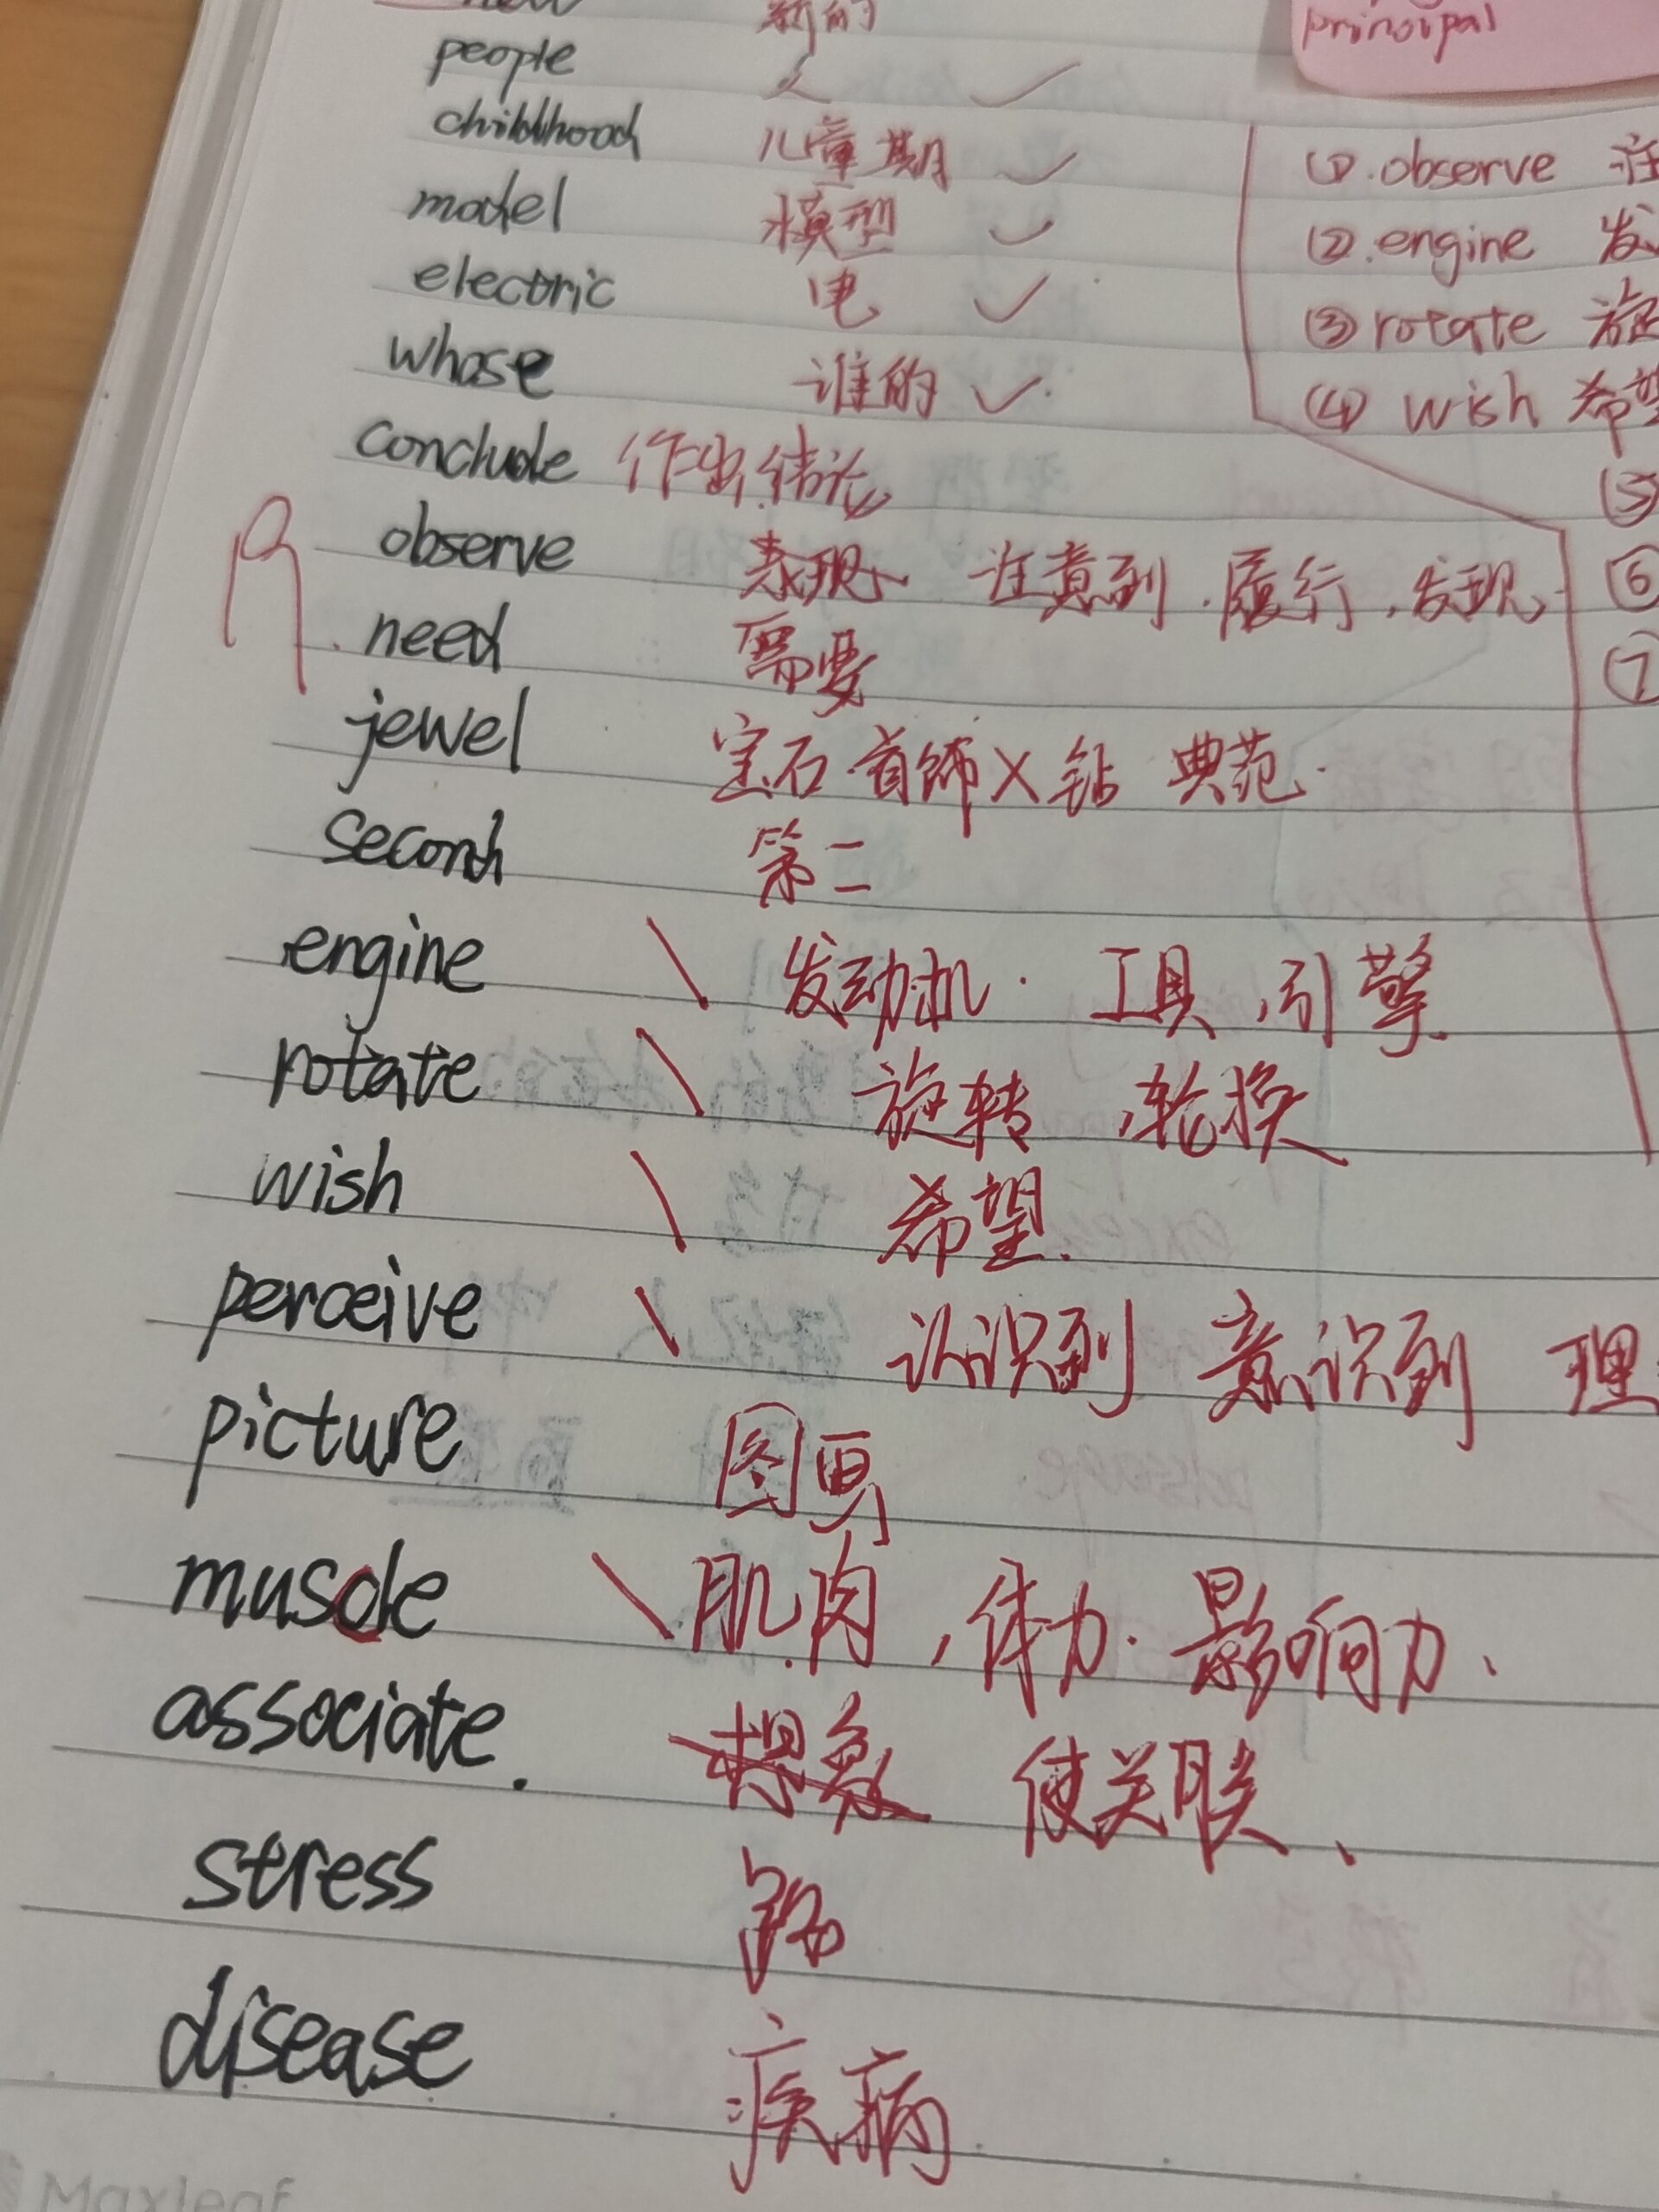 new 新的
principal
people 人
childhood 儿童期
① observe 注
model 模型
② engine 发
electric 电
③ rotate 旋
whose 谁的
④ wish 希望
conclude 作出结论
⑤
observe 表现 注意到.履行,发现
⑥
need 需要
⑦
jewel 宝石.首饰 X 钻 典范.
second 第二
engine 发动机. 工具,引擎
rotate 旋转,轮换
wish 希望.
perceive 认识到 意识到 理
picture 图画
muscle 肌肉,体力.影响力、
associate. 想象 使关联、
stress
disease 疾病
Maxleaf